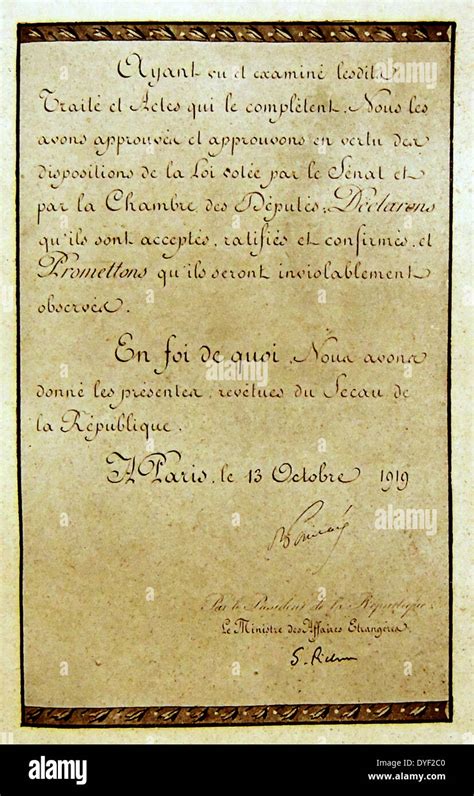 Ayant vu et examiné lesdits
Traité et Actes qui le complètent, Nous les
avons approuvés et approuvons en vertu des
dispositions de la Loi votée par le Sénat et
par la Chambre des Députés, Déclarons
qu'ils sont acceptés, ratifiés et confirmés, et
Promettons qu'ils seront inviolablement
observés.
En foi de quoi, Nous avons
donné les présentes, revêtues du Sceau de
la République.
A Paris, le 13 Octobre 1919
Par le Président de la République:
Le Ministre des Affaires Etrangères
alamy
alamy
alamy
Image ID: DYF2C0
www.alamy.com